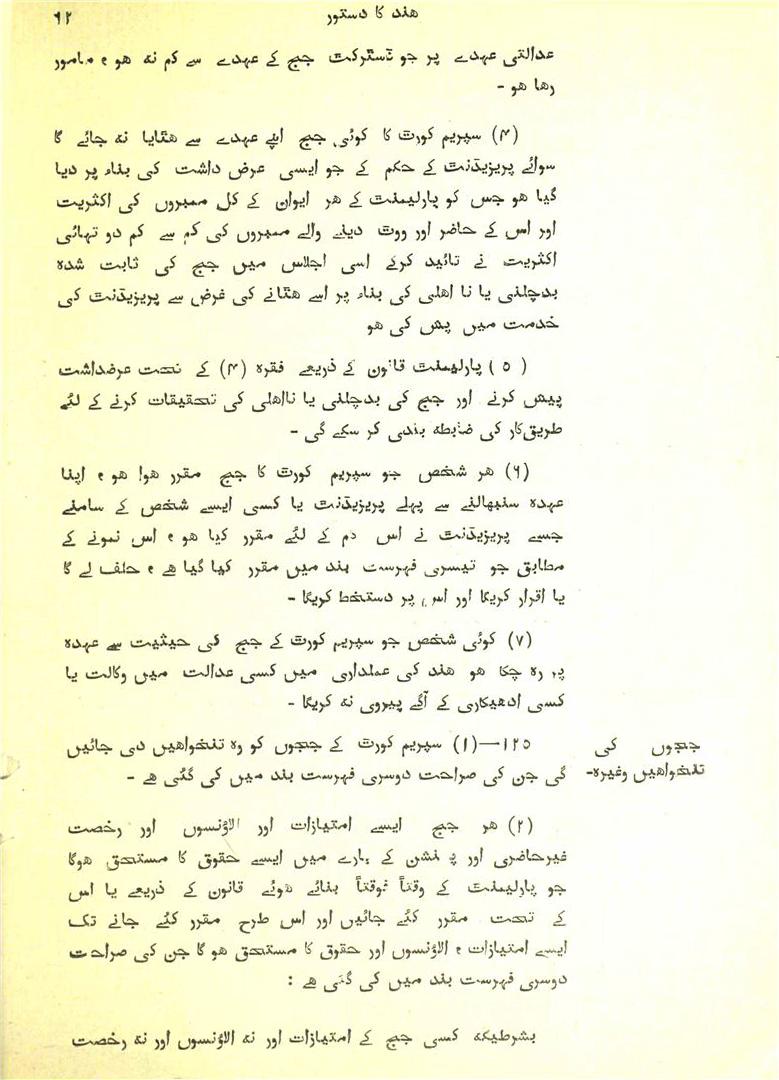 ھند کا دستور
۶۲
عدالتی عہدے پر جو ڈسٹرکٹ جج کے عہدے سے کم نہ ھو ، مامور
رھا ھو -
(۴) سپریم کورٹ کا کوئی جج اپنے عہدے سے ھٹایا نہ جائے گا
سوائے پریزیڈنٹ کے حکم کے جو ایسی عرض داشت کی بناء پر دیا
گیا ھو جس کو پارلیمنٹ کے ھر ایوان کے کل ممبروں کی اکثریت
اور اس کے حاضر اور ووٹ دینے والے ممبروں کی کم سے کم دو تہائی
اکثریت نے تائید کرکے اسی اجلاس میں جج کی ثابت شدہ
بدچلنی یا نا اھلی کی بناء پر اسے ھٹانے کی غرض سے پریزیڈنٹ کی
خدمت میں پیش کی ھو
(۵) پارلیمنٹ قانون کے ذریعے فقرہ (۴) کے تحت عرضداشت
پیش کرنے اور جج کی بدچلنی یا نااھلی کی تحقیقات کرنے کے لئے
طریق‌کار کی ضابطہ بندی کر سکے گی -
(۶) ھر شخص جو سپریم کورٹ کا جج مقرر ھوا ھو ، اپنا
عہدہ سنبھالنے سے پہلے پریزیڈنٹ یا کسی ایسے شخص کے سامنے
جسے پریزیڈنٹ نے اس دم کے لئے مقرر کیا ھو ، اس نمونے کے
مطابق جو تیسری فہرست بند میں مقرر کیا گیا ھے ، حلف لے گا
یا اقرار کریگا اور اس پر دستخط کریگا -
(۷) کوئی شخص جو سپریم کورٹ کے جج کی حیثیت سے عہدہ
پر رہ چکا ھو ھند کی عملداری میں کسی عدالت میں وکالت یا
کسی ادھیکاری کے آگے پیروی نہ کریگا -
ججوں کی
تنخواھیں وغیرہ-
۱۲۵—(۱) سپریم کورٹ کے ججوں کو وہ تنخواھیں دی جائیں
گی جن کی صراحت دوسری فہرست بند میں کی گئی ھے -
(۲) ھر جج ایسے امتیازات اور الاؤنسوں اور رخصت
غیرحاضری اور پنشن کے بارے میں ایسے حقوق کا مستحق ھوگا
جو پارلیمنٹ کے وقتاً فوقتاً بنائے ھوئے قانون کے ذریعے یا اس
کے تحت مقرر کئے جائیں اور اس طرح مقرر کئے جانے تک
ایسے امتیازات ، الاؤنسوں اور حقوق کا مستحق ھو گا جن کی صراحت
دوسری فہرست بند میں کی گئی ھے :
بشرطیکہ کسی جج کے امتیازات اور نہ الاؤنسوں اور نہ رخصت